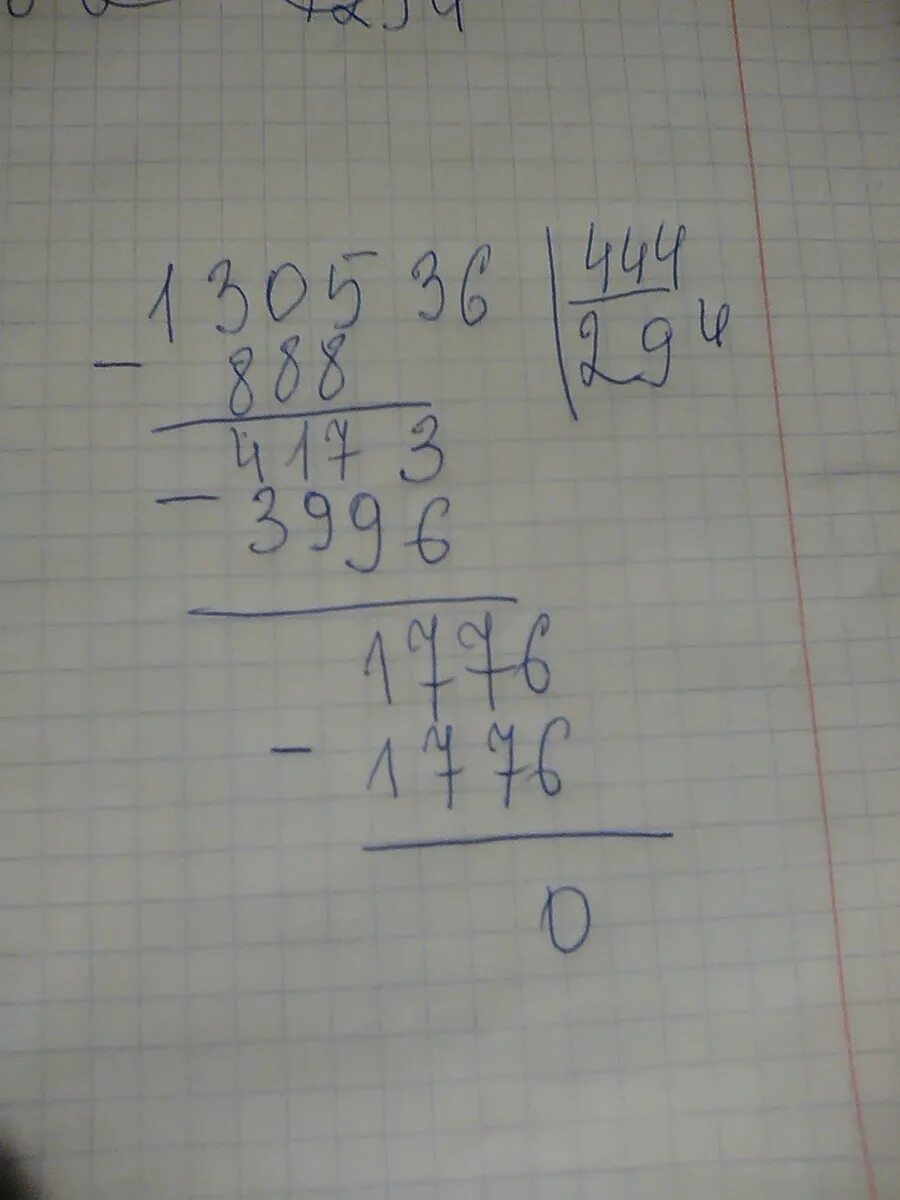 130536 444
- 888 294
4173
- 3996
1776
- 1776
0